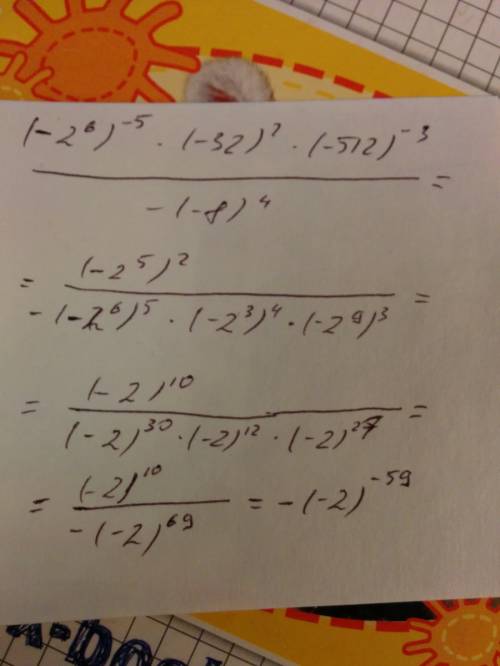 (-2⁶)⁻⁵ · (-32)² · (-512)⁻³
-(-8)⁴ =
= (-2⁵)²
-(-2⁶)⁵ · (-2³)⁴ · (-2⁹)³ =
= (-2)¹⁰
(-2)³⁰ · (-2)¹² · (-2)²⁷ =
= (-2)¹⁰
-(-2)⁶⁹ = -(-2)⁻⁵⁹